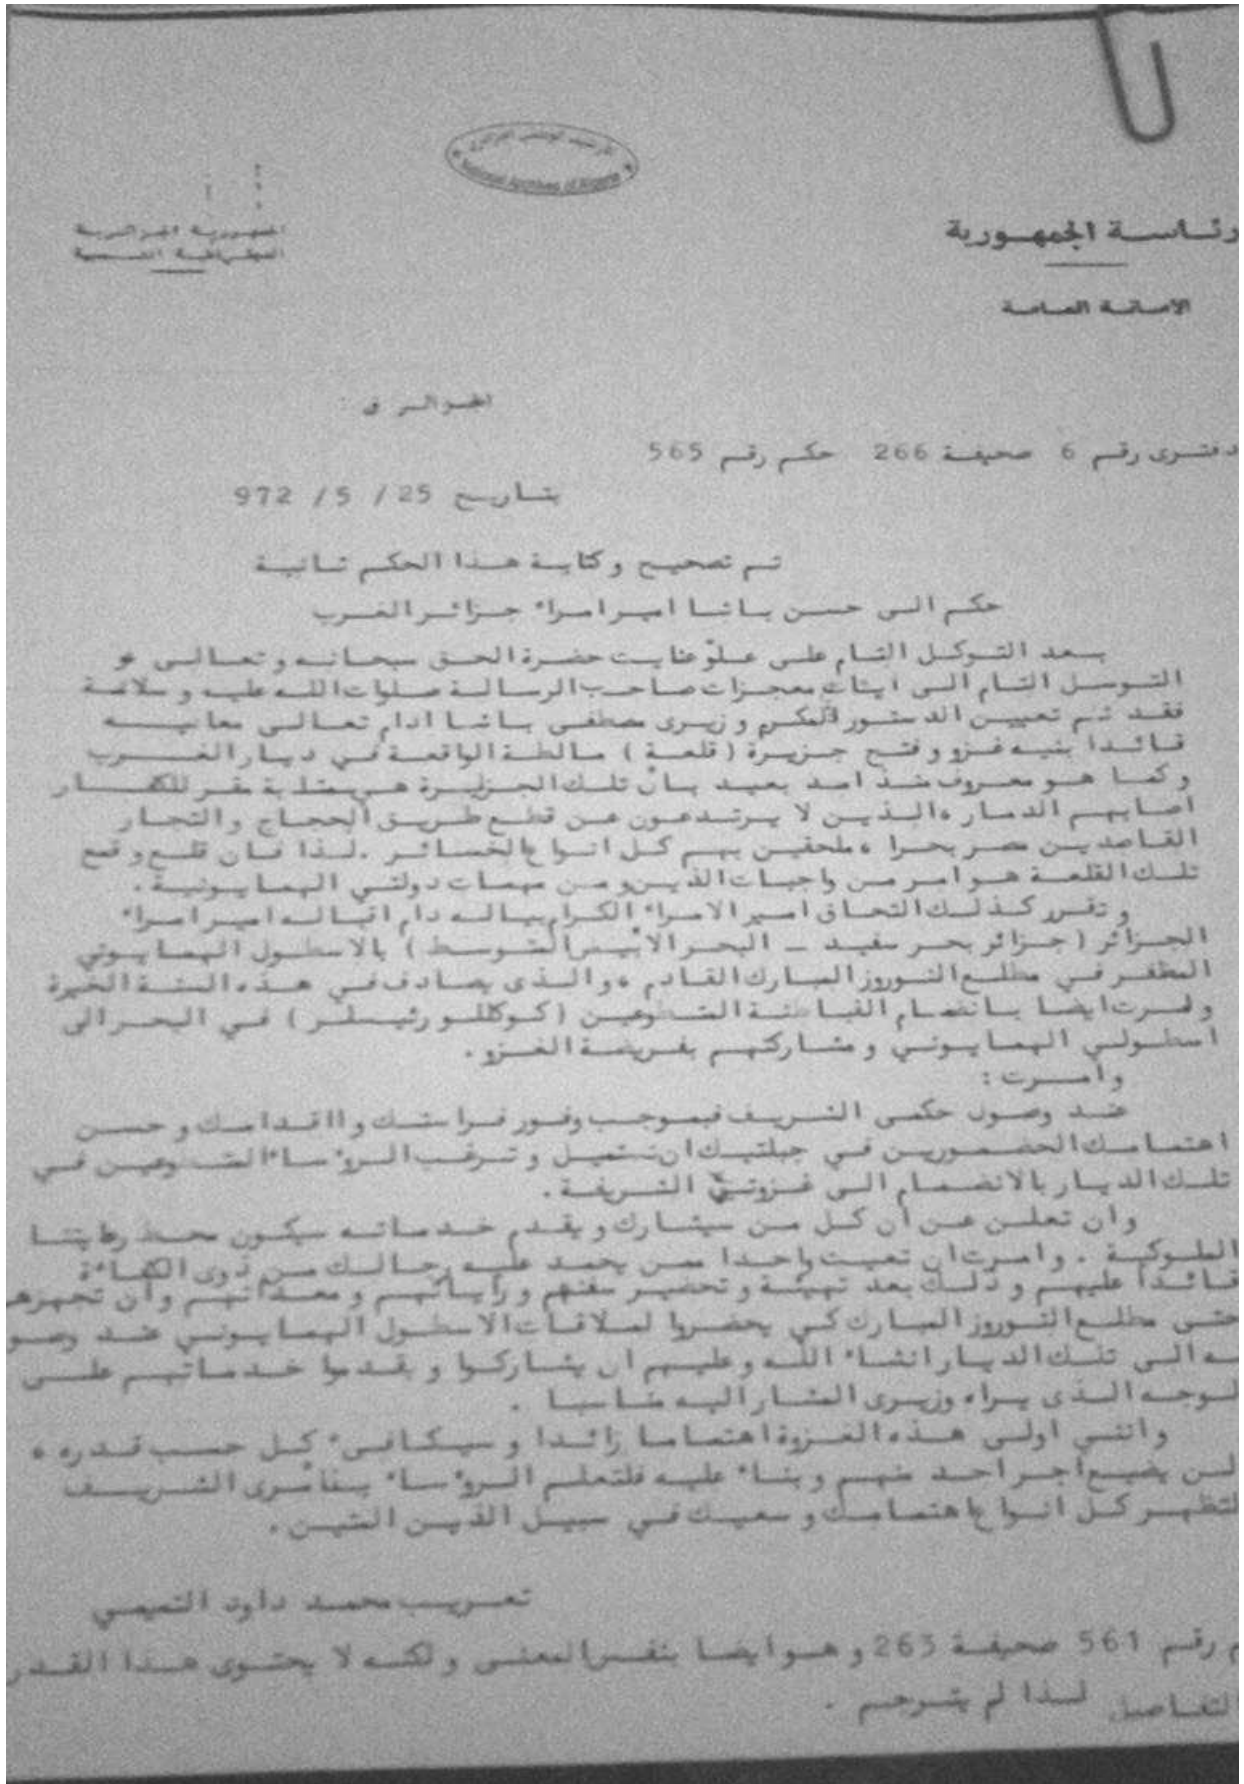 الأرشيف الوطني الجزائري
National Archives of Algeria
رئاسة الجمهورية
الجمهورية الجزائرية
الديمقراطية الشعبية
الامانة العامة
الجزائر في
دفترى رقم 6 صحيفة 266 حكم رقم 565
بتاريخ 25 / 5 / 972
تم تصحيح وكتابة هذا الحكم ثانية
حكم الى حسن باشا امير امراء جزائر الغرب
بعد التوكل التام على علو عنايت حضرة الحق سبحانه وتعالى و
التوسل التام الى ايثات معجزات صاحب الرسالة صلوات الله عليه وسلامة
فقد تم تعيين الدستور المكرم وزيرى مصطفى باشا ادام تعالى معاليه
قائدا بنيه غزو وفتح جزيرة ( قلعة ) مالطة الواقعة في ديار الغرب
وكما هو معروف منذ امد بعيد بان تلك الجزيرة هي بمثابة مقر للكفار
اصابهم الدمار ، الذين لا يرتدعون عن قطع طريق الحجاج والتجار
القاصدين مصر بحرا ، ملحقين بهم كل انواع الخسائر . لذا فان قلع وقمع
تلك القلعة هو امر من واجبات الدين ومن مهمات دولتي الهمايونية .
وتقرر كذلك التحاق امير الامراء الكرام بياله دام اقباله امير امراء
الجزائر ( جزائر بحر سفيد - البحر الابيض المتوسط ) بالاسطول الهمايوني
المظفر في مطلع النوروز المبارك القادم ، والذى يصادف في هذه السنة الخيرة
وقررت ايضا بانضمام القباطنة المتطوعين ( كوكللو رئيسلر ) في البحر الى
اسطولي الهمايوني ومشاركتهم بفريضة الغزو .
وامرت :
عند وصول حكمى الشريف فبموجب وفور فراستك واقدامك وحسن
اهتمامك الحضورين في جبلتيك ان تستميل وترغب الرؤساء المتطوعين في
تلك الديار بالانضمام الى غزوتي الشريفة .
وان تعلن عن ان كل من سيشارك ويقدم خدماته سيكون محط رعايتنا
الملوكية . وامرت ان تعيت واحدا ممن يحمد عليه رجالك من ذوى الكفاءة
قائدا عليهم وذلك بعد تهيئة وتحضير سفنهم وراياتهم ومعداتهم وان تجهزهم
حتى مطلع النوروز المبارك كي يحضروا لملاقات الاسطول الهمايوني عند وصو
ـه الى تلك الديار انشاء الله وعليهم ان يشاركوا ويقدموا خدماتهم على
لوجه الذى يراه وزيرى المشار اليه مناسبا .
وانني اولى هذه الغزوة اهتماما زائدا وسيكافىء كل حسب قدره ،
لن يضيع اجر احد منهم وبناء عليه فلتعلم الرؤساء بنا مرى الشريف
لتظهر كل انواع اهتمامك وسعيك في سبيل الدين المتين .
تعريب محمد داود التميمي
م رقم 561 صحيفة 263 وهو ايضا بنفس المعنى ولكنه لا يحتوى هذا القدر
التفاصيل لذا لم يترجم .